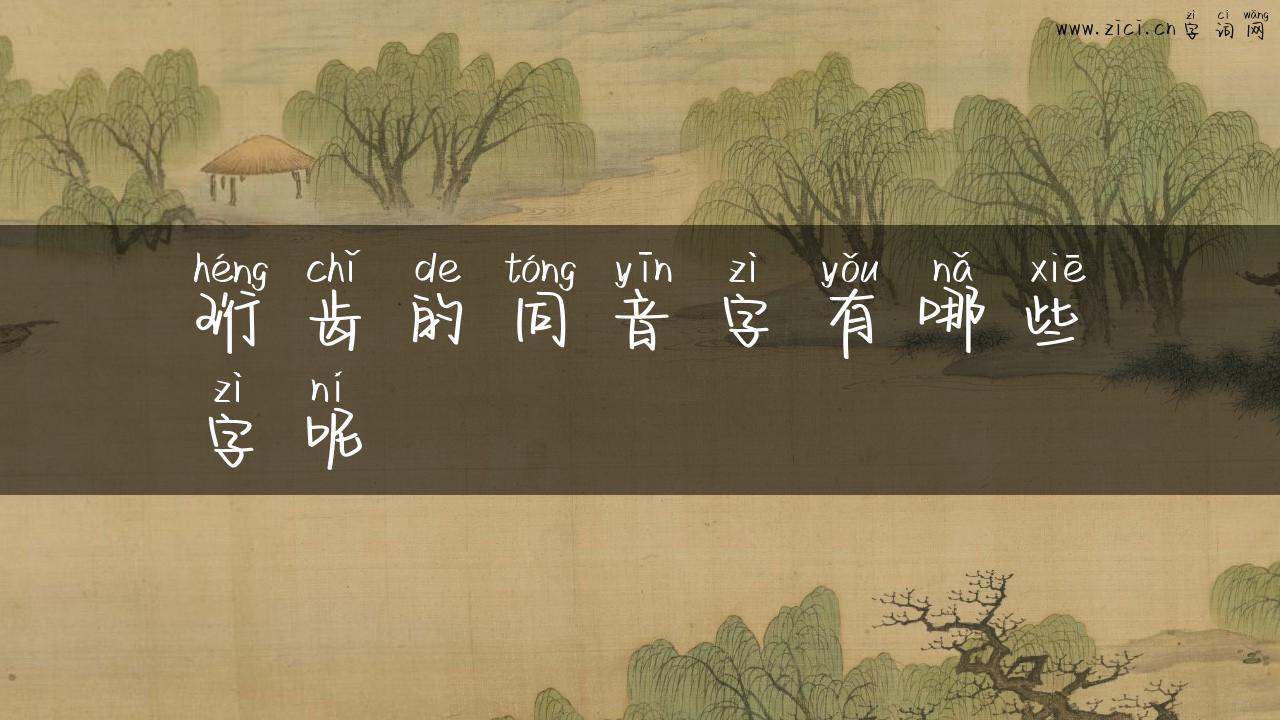 zì cí wǎng
www.zici.cn 字 词 网
héng chǐ de tóng yīn zì yǒu nǎ xiē
珩 齿 的 同 音 字 有 哪 些
zì ní
字 呢